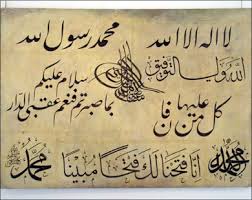 لا اله الا الله محمد رسول الله
الله ولي التوفيق
سلام عليكم
بما صبرتم فنعم عقبى الدار
كل من عليها فان
انا فتحنا لك فتحا مبينا
محمد